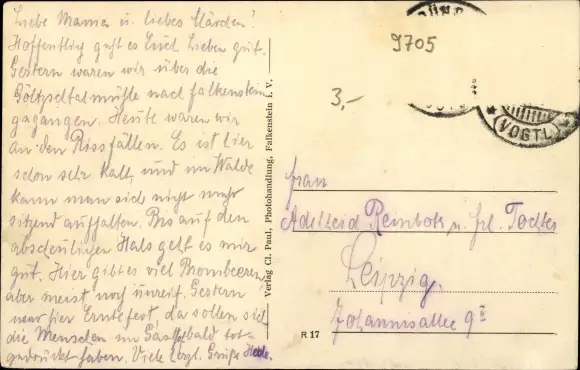 Liebe Mama u. liebes Märchen!
Hoffentlich geht es Euch Lieben gut.
Gestern waren wir über die
Göltzschtalmühle nach Falkenstein
gegangen. Heute waren wir
an den Rissfällen. Es ist hier
schon sehr kalt, und im Walde
kann man sich nicht mehr
sitzend aufhalten. Bis auf den
abscheulichen Hals geht es mir
gut. Hier gibt es viel Brombeeren,
aber meist noch unreif. Gestern
war hier Erntefest, da sollen sich
die Menschen im Gasthof bald tot-
gedrückt haben. Viele herzl. Grüße
Verlag Cl. Paul, Photohandlung, Falkenstein i. V.
9705
3,-
(VOGTL.)
Frau
Adelheid Reinboth u. Frl. Tochter
Leipzig.
Johannisallee 9 II
R 17